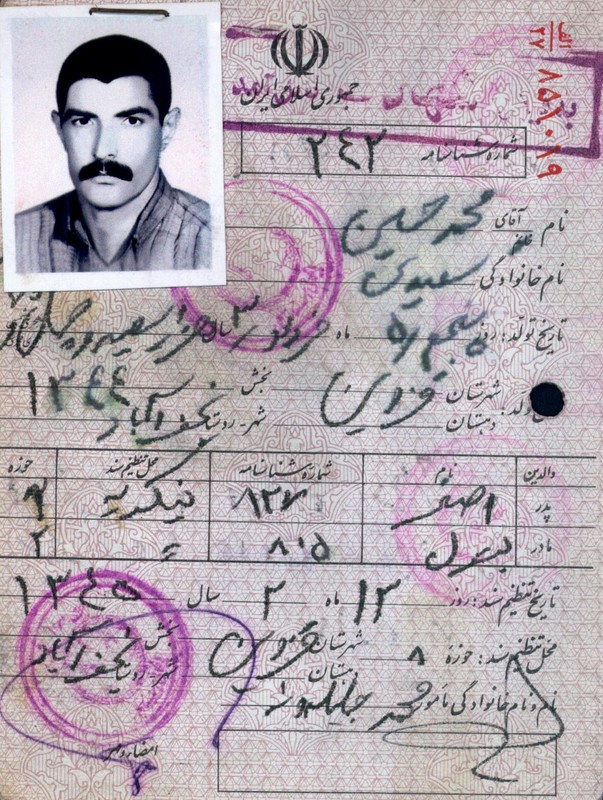 الف
۲۷
۸۵۷۰۱۹
جمهوری اسلامی ایران
شماره شناسنامه ۲۴۲
نام آقای خانم محمد حسین
نام خانوادگی سعیدی
تاریخ تولد: روز پنجم ۵ ماه خرداد ۳ سال هزار سیصد و چهل و
۱۳۴۴
شهرستان قزوین بخش
دهستان شهر-روستا نجف آباد
والدین نام شماره شناسنامه محل تنظیم سند حوزه
پدر اصغر ۸۲۷
مادر ۸۰۵ ۲
تاریخ تنظیم سند: روز ۱۲ ماه ۲ سال ۱۳۴۵
محل تنظیم سند: حوزه ۸ شهرستان قزوین بخش
دهستان شهر-روستا نجف آباد
نام و نام خانوادگی مأمور محمد
امضاء و مهر